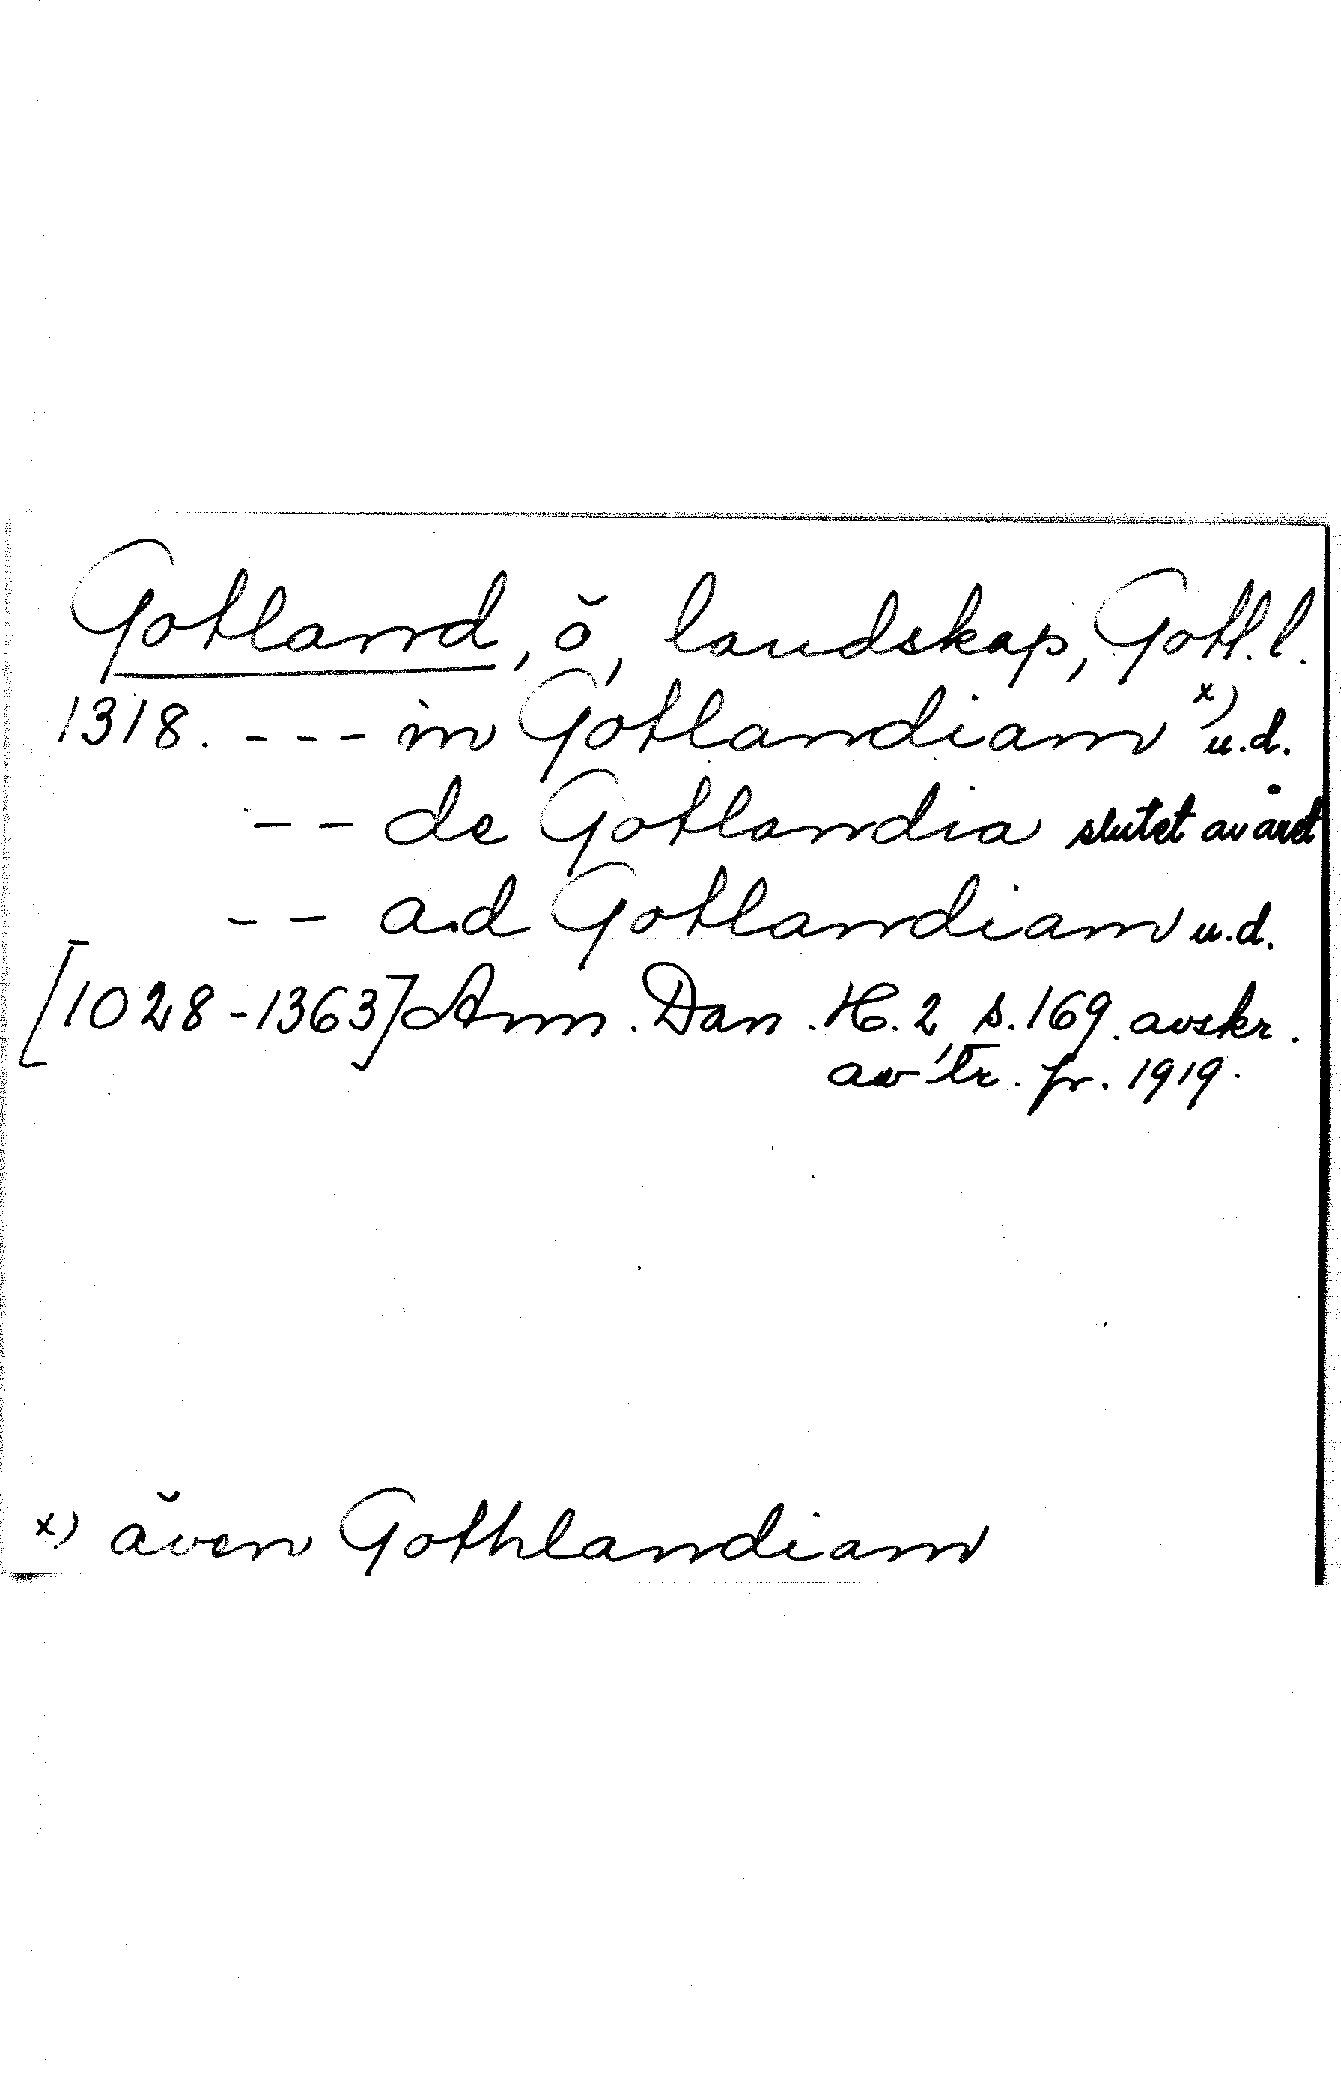 Gotland, ö, landskap, Gotl. l.
1318. --- in Gotlandiam x) u.d.
-- de Gotlandia slutet av året
-- ad Gotlandiam u.d.
[1028-1363] Ann. Dan. H. 2, s. 169. avskr.
av tr. fr. 1919.
x) även Gothlandiam